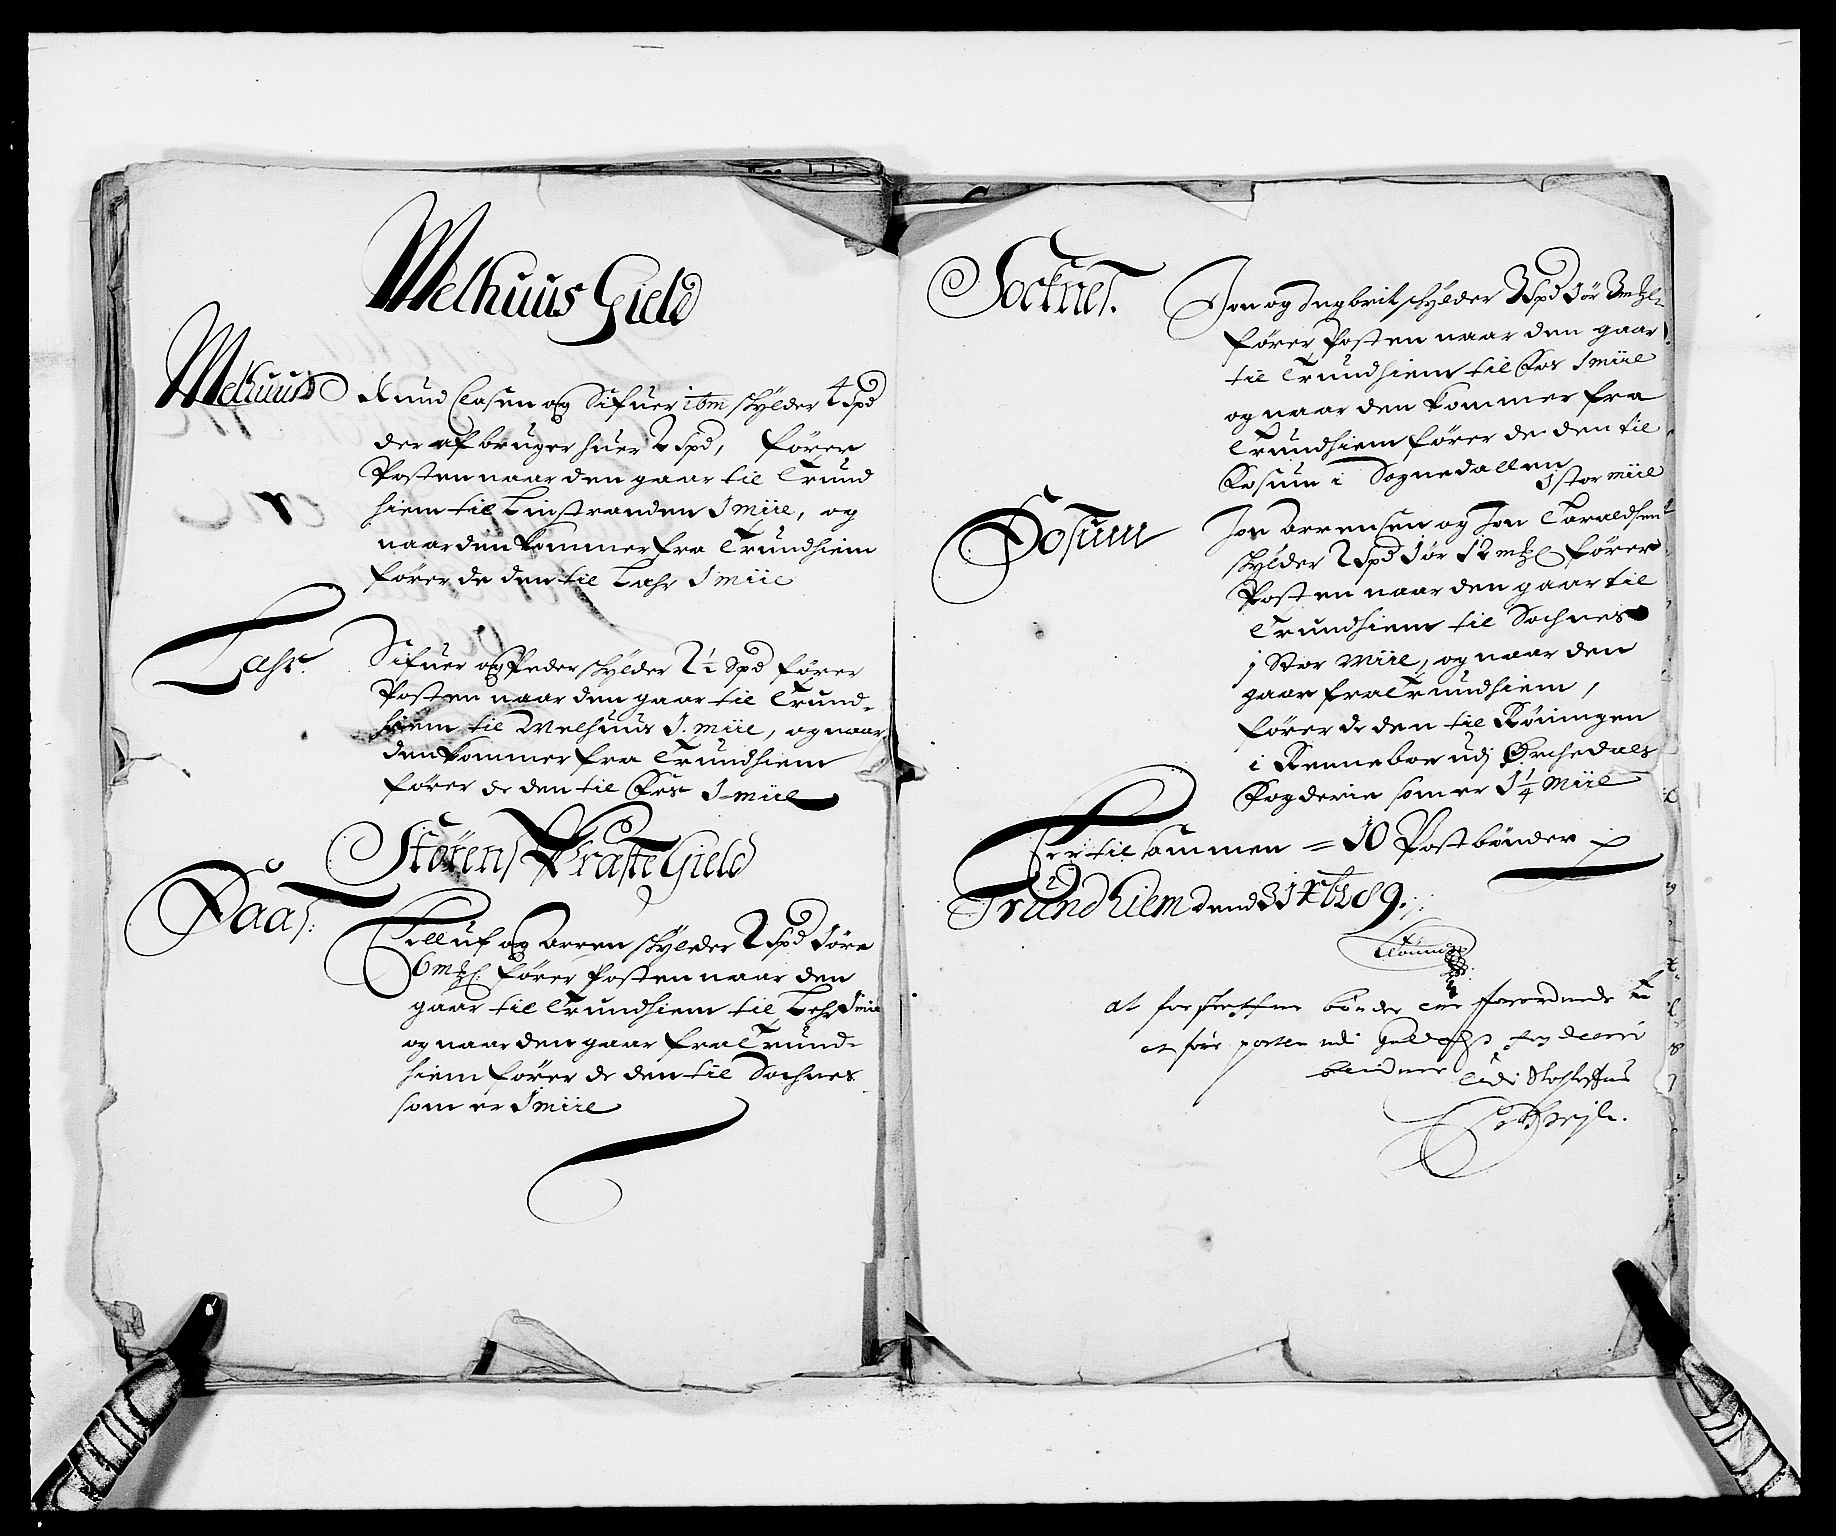 Melhuus Gield
Melhuus Knud Clasen og Sifuer ibm skylder 4 Spd
der af bruger huer 2 Spd, fører
Posten naar den gaar til Trund
hiem til Linstranden 1 miil, og
naar den kommer fra Trundhiem
fører de den til Lahr 1 miil
Lahr Sifuer og Peder skylder 2½ Spd fører
Posten naar den gaar til Trund-
hiem til Melhuus 1 miil, og naar
den kommer fra Trundhiem
fører de den til Foss 1 miil
Størens Præste Gield
Faas: Elluf og Arren skylder 2 Spd 1 øre
6 mkl. fører Posten naar den
gaar til Trundhiem til Lehr 1 miil
og naar den gaar fra Trund-
hiem fører de den til Sochnes
som er 1 miil
Socknes. Jon og Ingbrit skylder 3 Spd 1 ør 3 mkl
fører Posten naar den gaar
til Trundhiem til Fos 1 miil
og naar den kommer fra
Trundhiem fører de den til
Fosum i Sognedallen
1 stor miil
Fosum Jon Arrensen og Jon Taraldsen
skylder 2 Spd 1 ør 12 mkl fører
Posten naar den gaar til
Trundhiem til Sochnes
1 Stor Miil, og naar den
gaar fra Trundhiem,
fører de den til Røningen
i Renneboe udj Ørchedals
Fogderie som er 1¼ Miil
Er tilsammen = 10 Postbønder
Trundhiem dend 31 Xbr 89.
at forskrefne bønder ere forordnede til
at føre posten udi